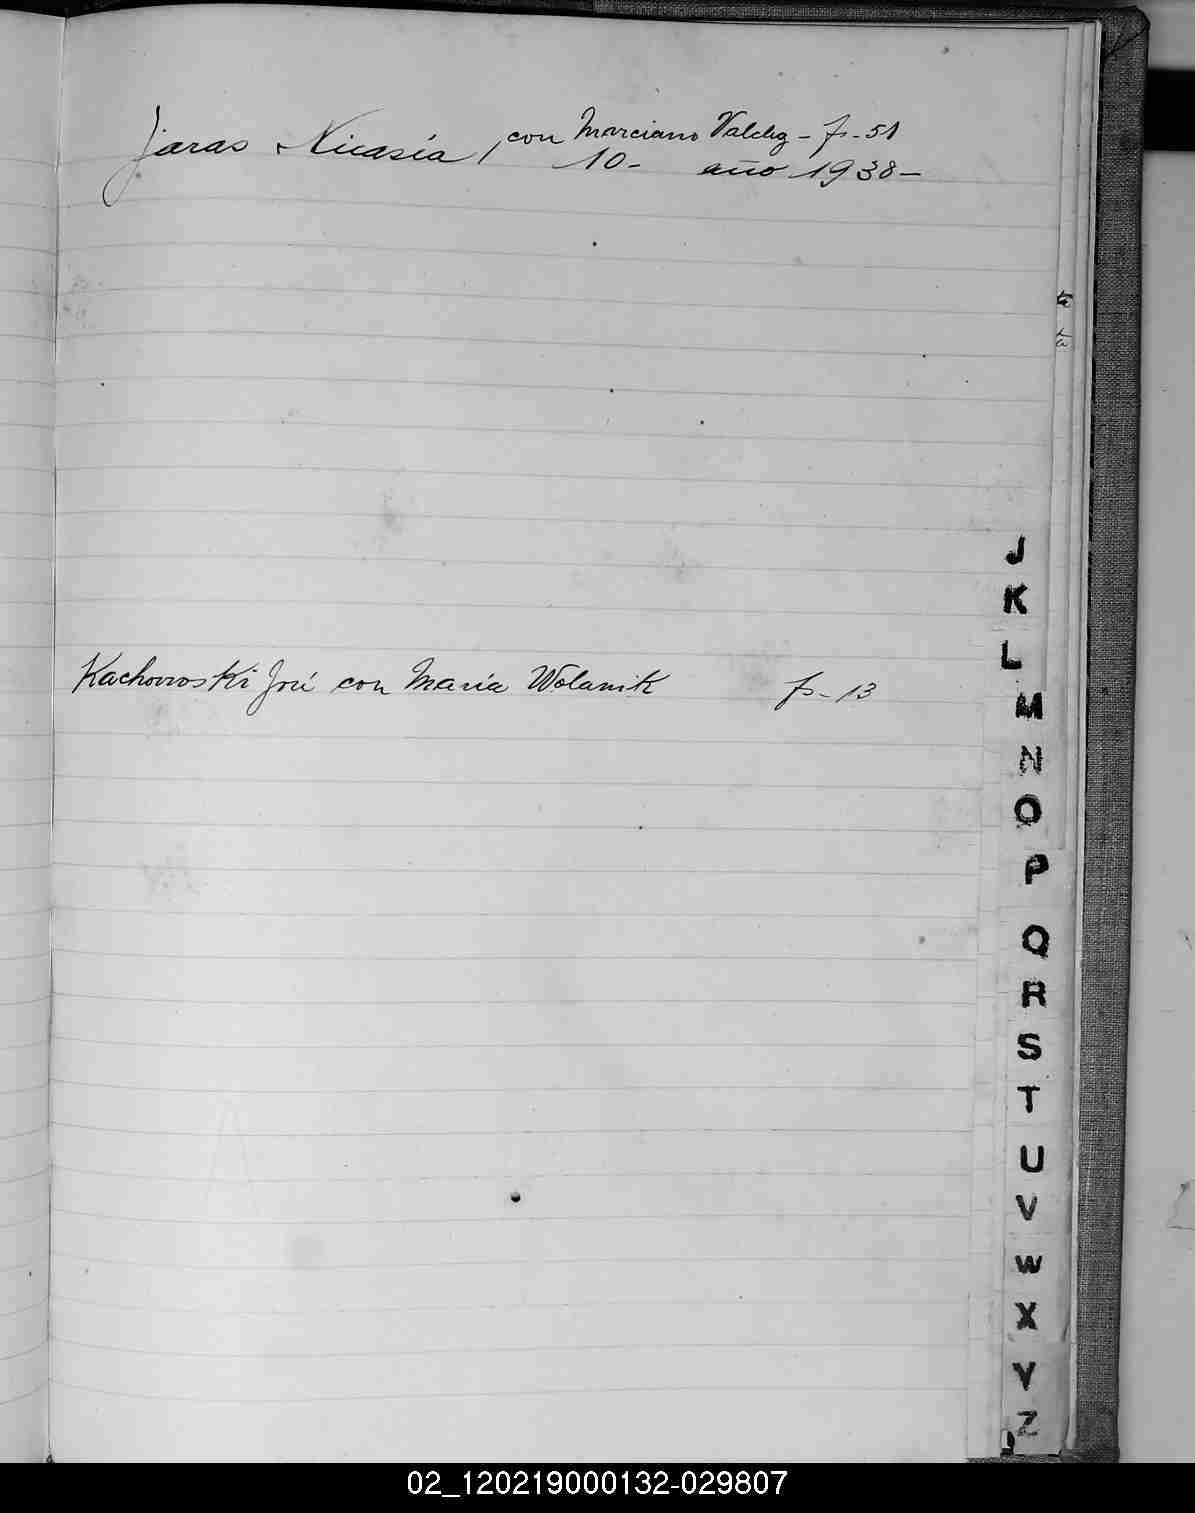 Jaras Nicasia, con Marciano Valdez - f - 51
10 - año 1938 -
Kachorroski José con Maria Wolanik f - 13
J
K
L
M
N
O
P
Q
R
S
T
U
V
W
X
Y
Z
02_120219000132-029807